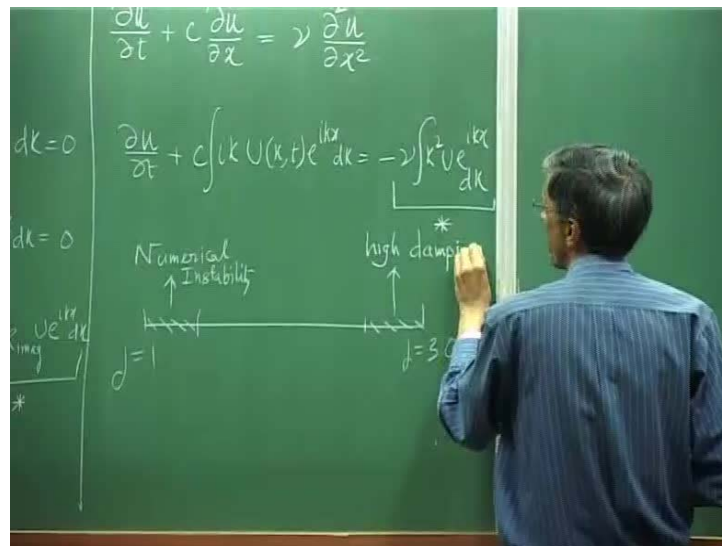 ∂u/∂t + c ∂u/∂x = ν ∂²u/∂x²
dk = 0
∂u/∂t + c∫ik U(k,t)e^{ikx}dk = -ν∫k²Ue^{ikx}dk
*
dk = 0
Numerical
Instability
high damping
imag Ue^{ikx}dk
*
j=1
j=30